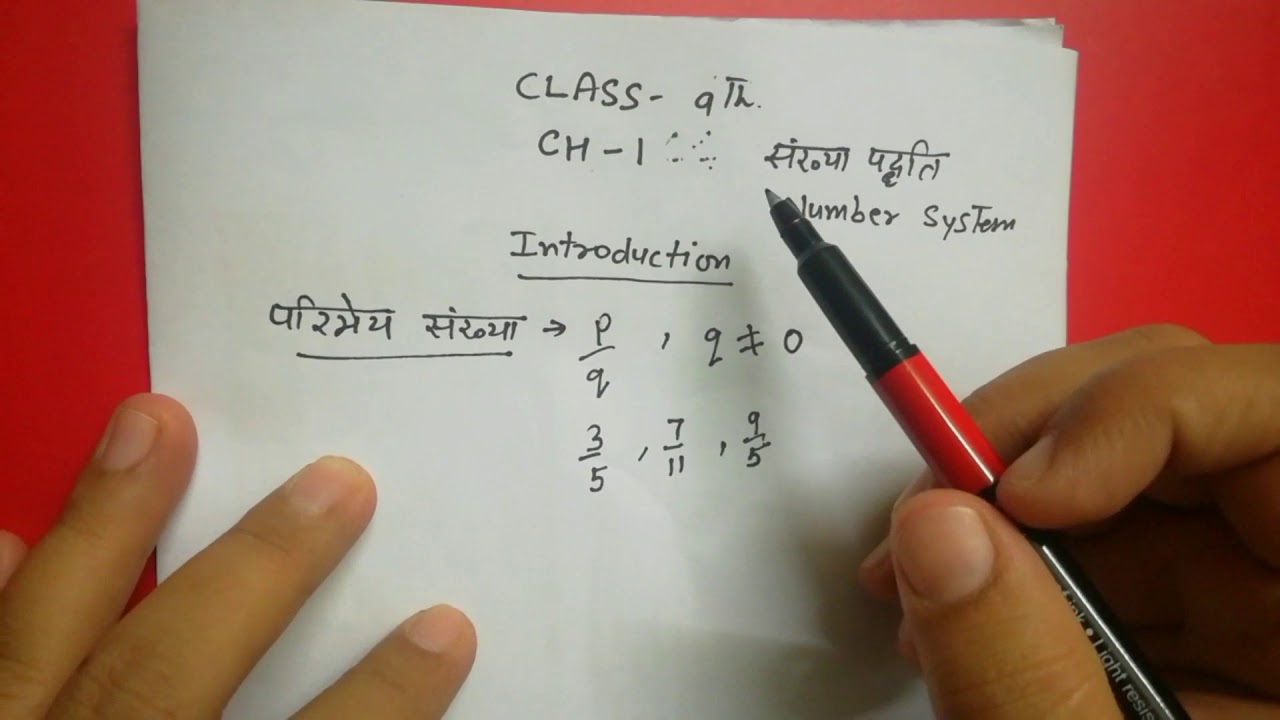 CLASS- 9Th.
CH-1 संख्या पद्धति
Number System
Introduction
परिमेय संख्या → p/q , q ≠ 0
3/5 , 7/11 , 9/5
Light resis